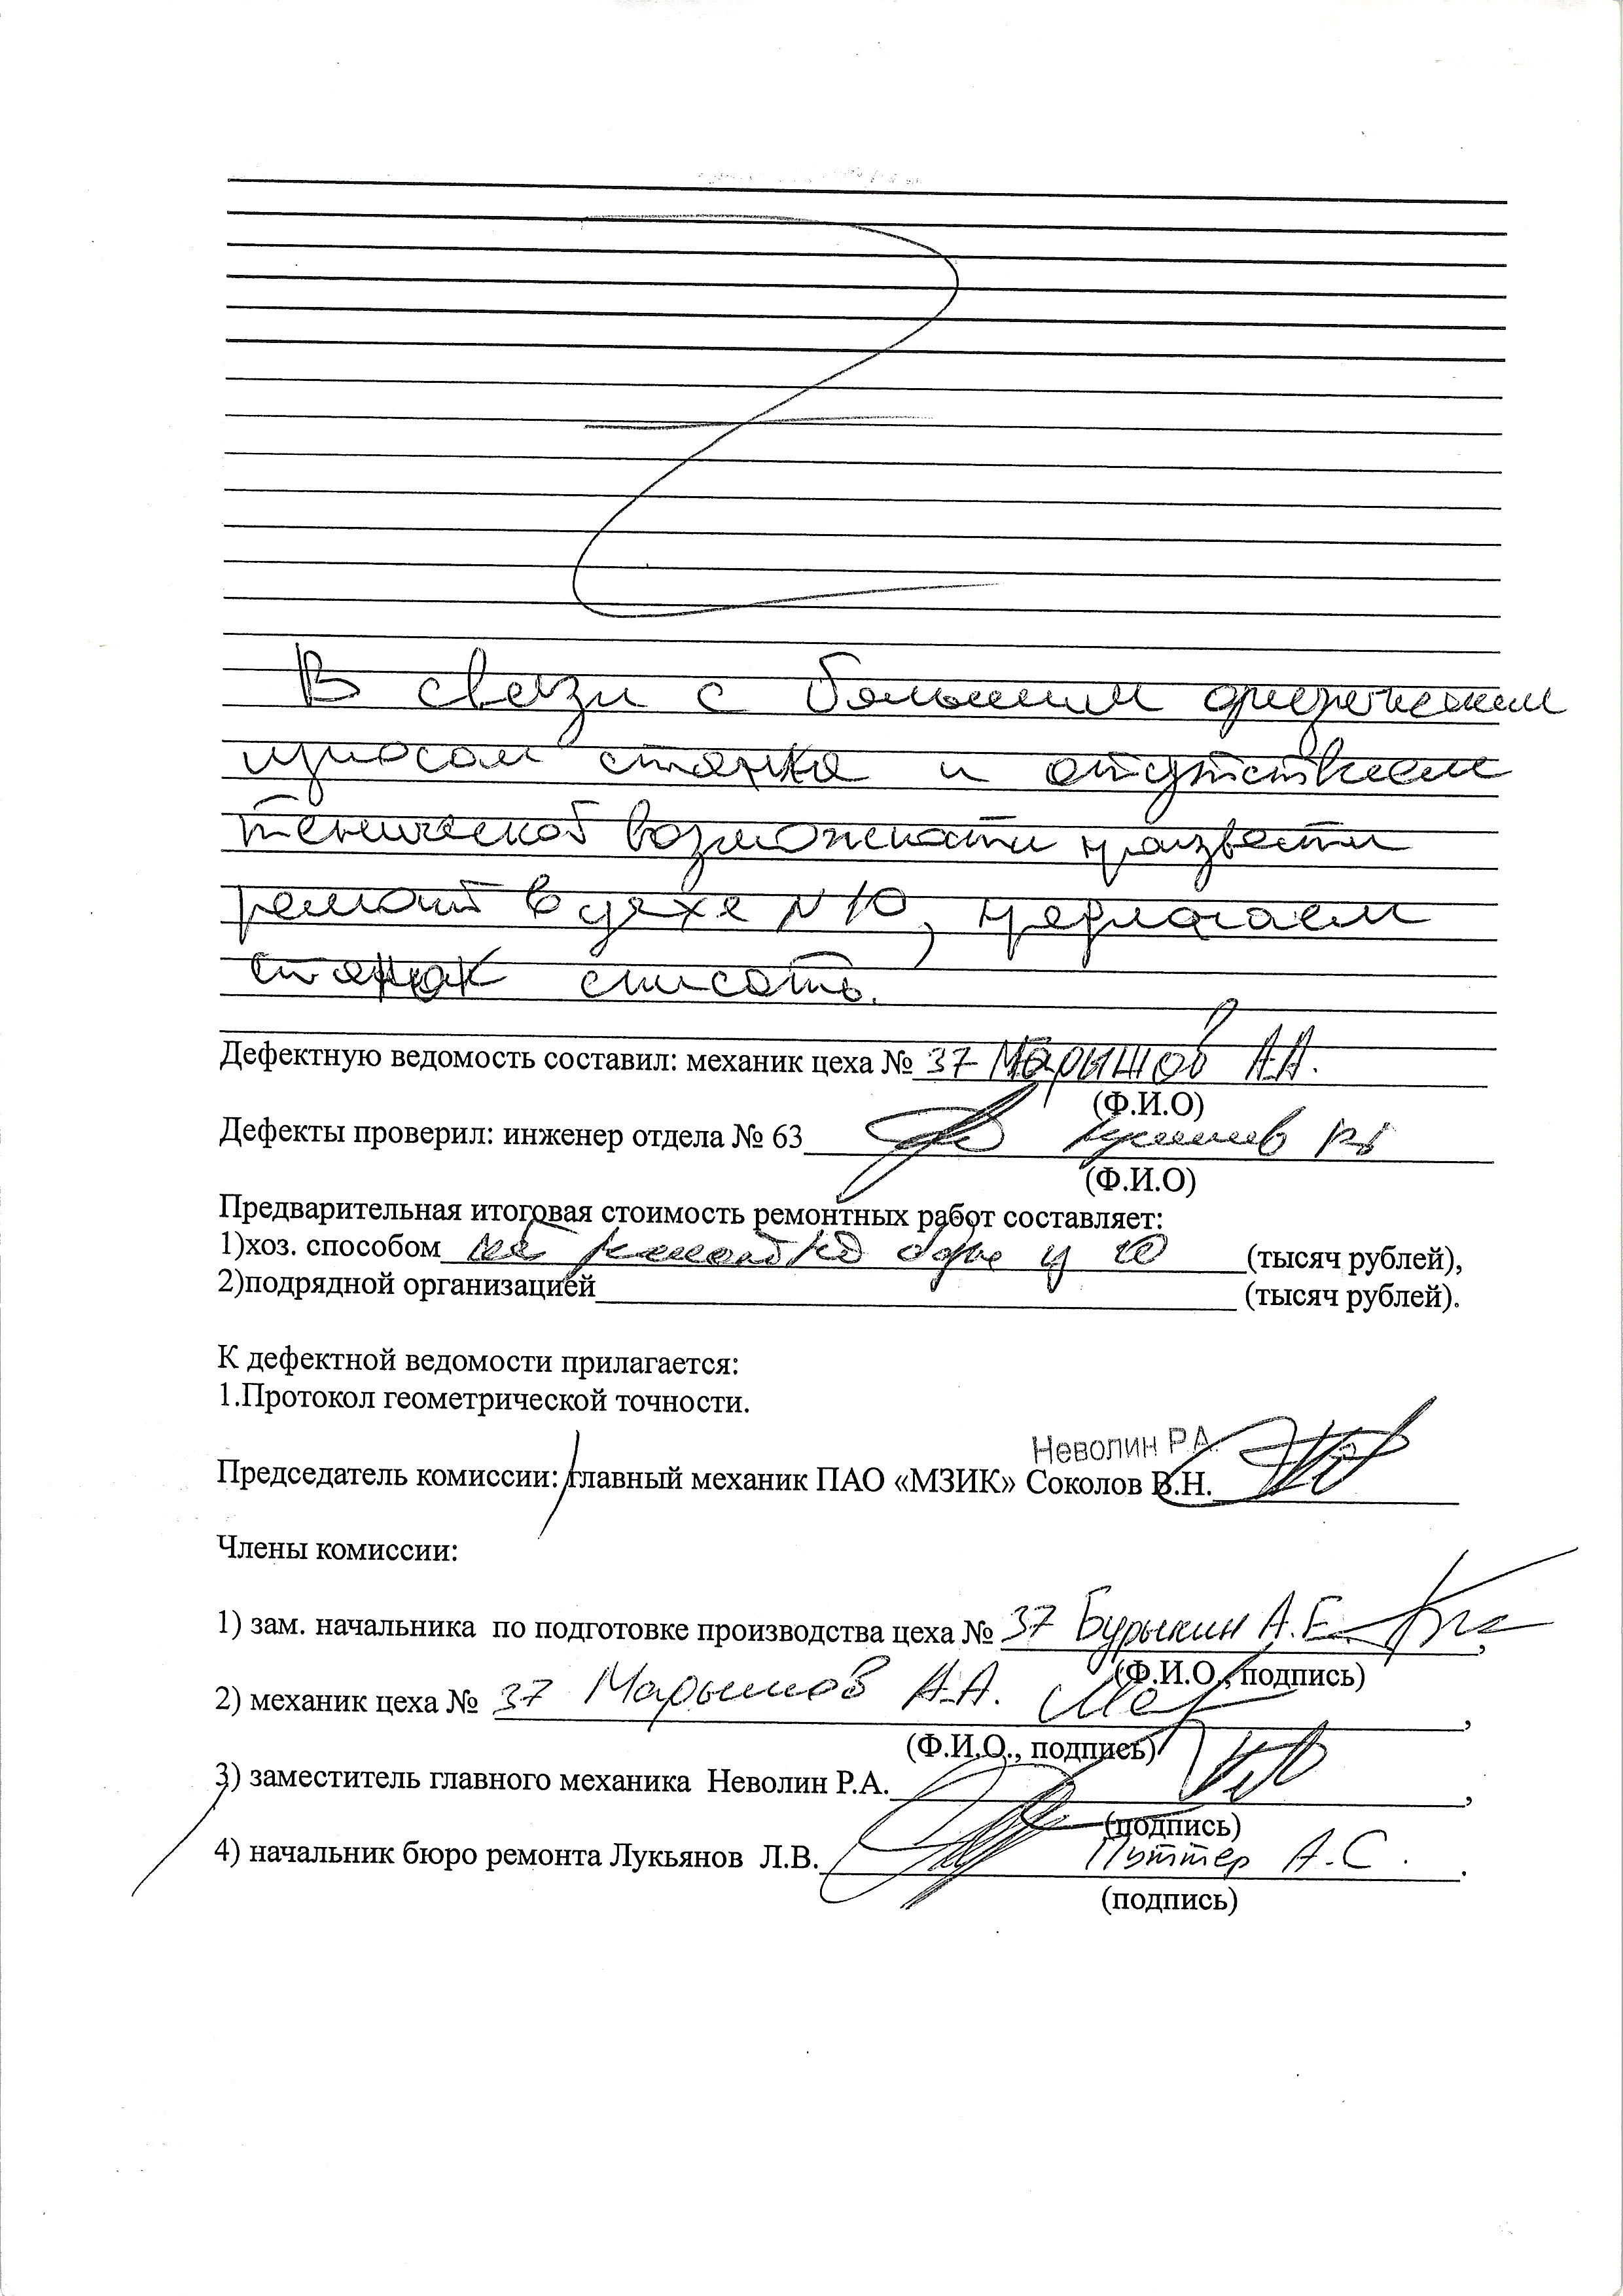 В связи с большим физическим
износом станка и отсутствием
технической возможности произвести
ремонт в цехе № 10, предлагаем
станок списать.
Дефектную ведомость составил: механик цеха № 37 Марышов А.А.
(Ф.И.О)
Дефекты проверил: инженер отдела № 63
(Ф.И.О)
Предварительная итоговая стоимость ремонтных работ составляет:
1)хоз. способом (тысяч рублей),
2)подрядной организацией (тысяч рублей).
К дефектной ведомости прилагается:
1.Протокол геометрической точности.
Неволин Р.А.
Председатель комиссии: главный механик ПАО «МЗИК» Соколов В.Н.
Члены комиссии:
1) зам. начальника по подготовке производства цеха № 37 Бурыкин А.Е. ,
(Ф.И.О., подпись)
2) механик цеха № 37 Марышов А.А. ,
(Ф.И.О., подпись)
3) заместитель главного механика Неволин Р.А. ,
(подпись)
4) начальник бюро ремонта Лукьянов Л.В. Путтер А.С. .
(подпись)